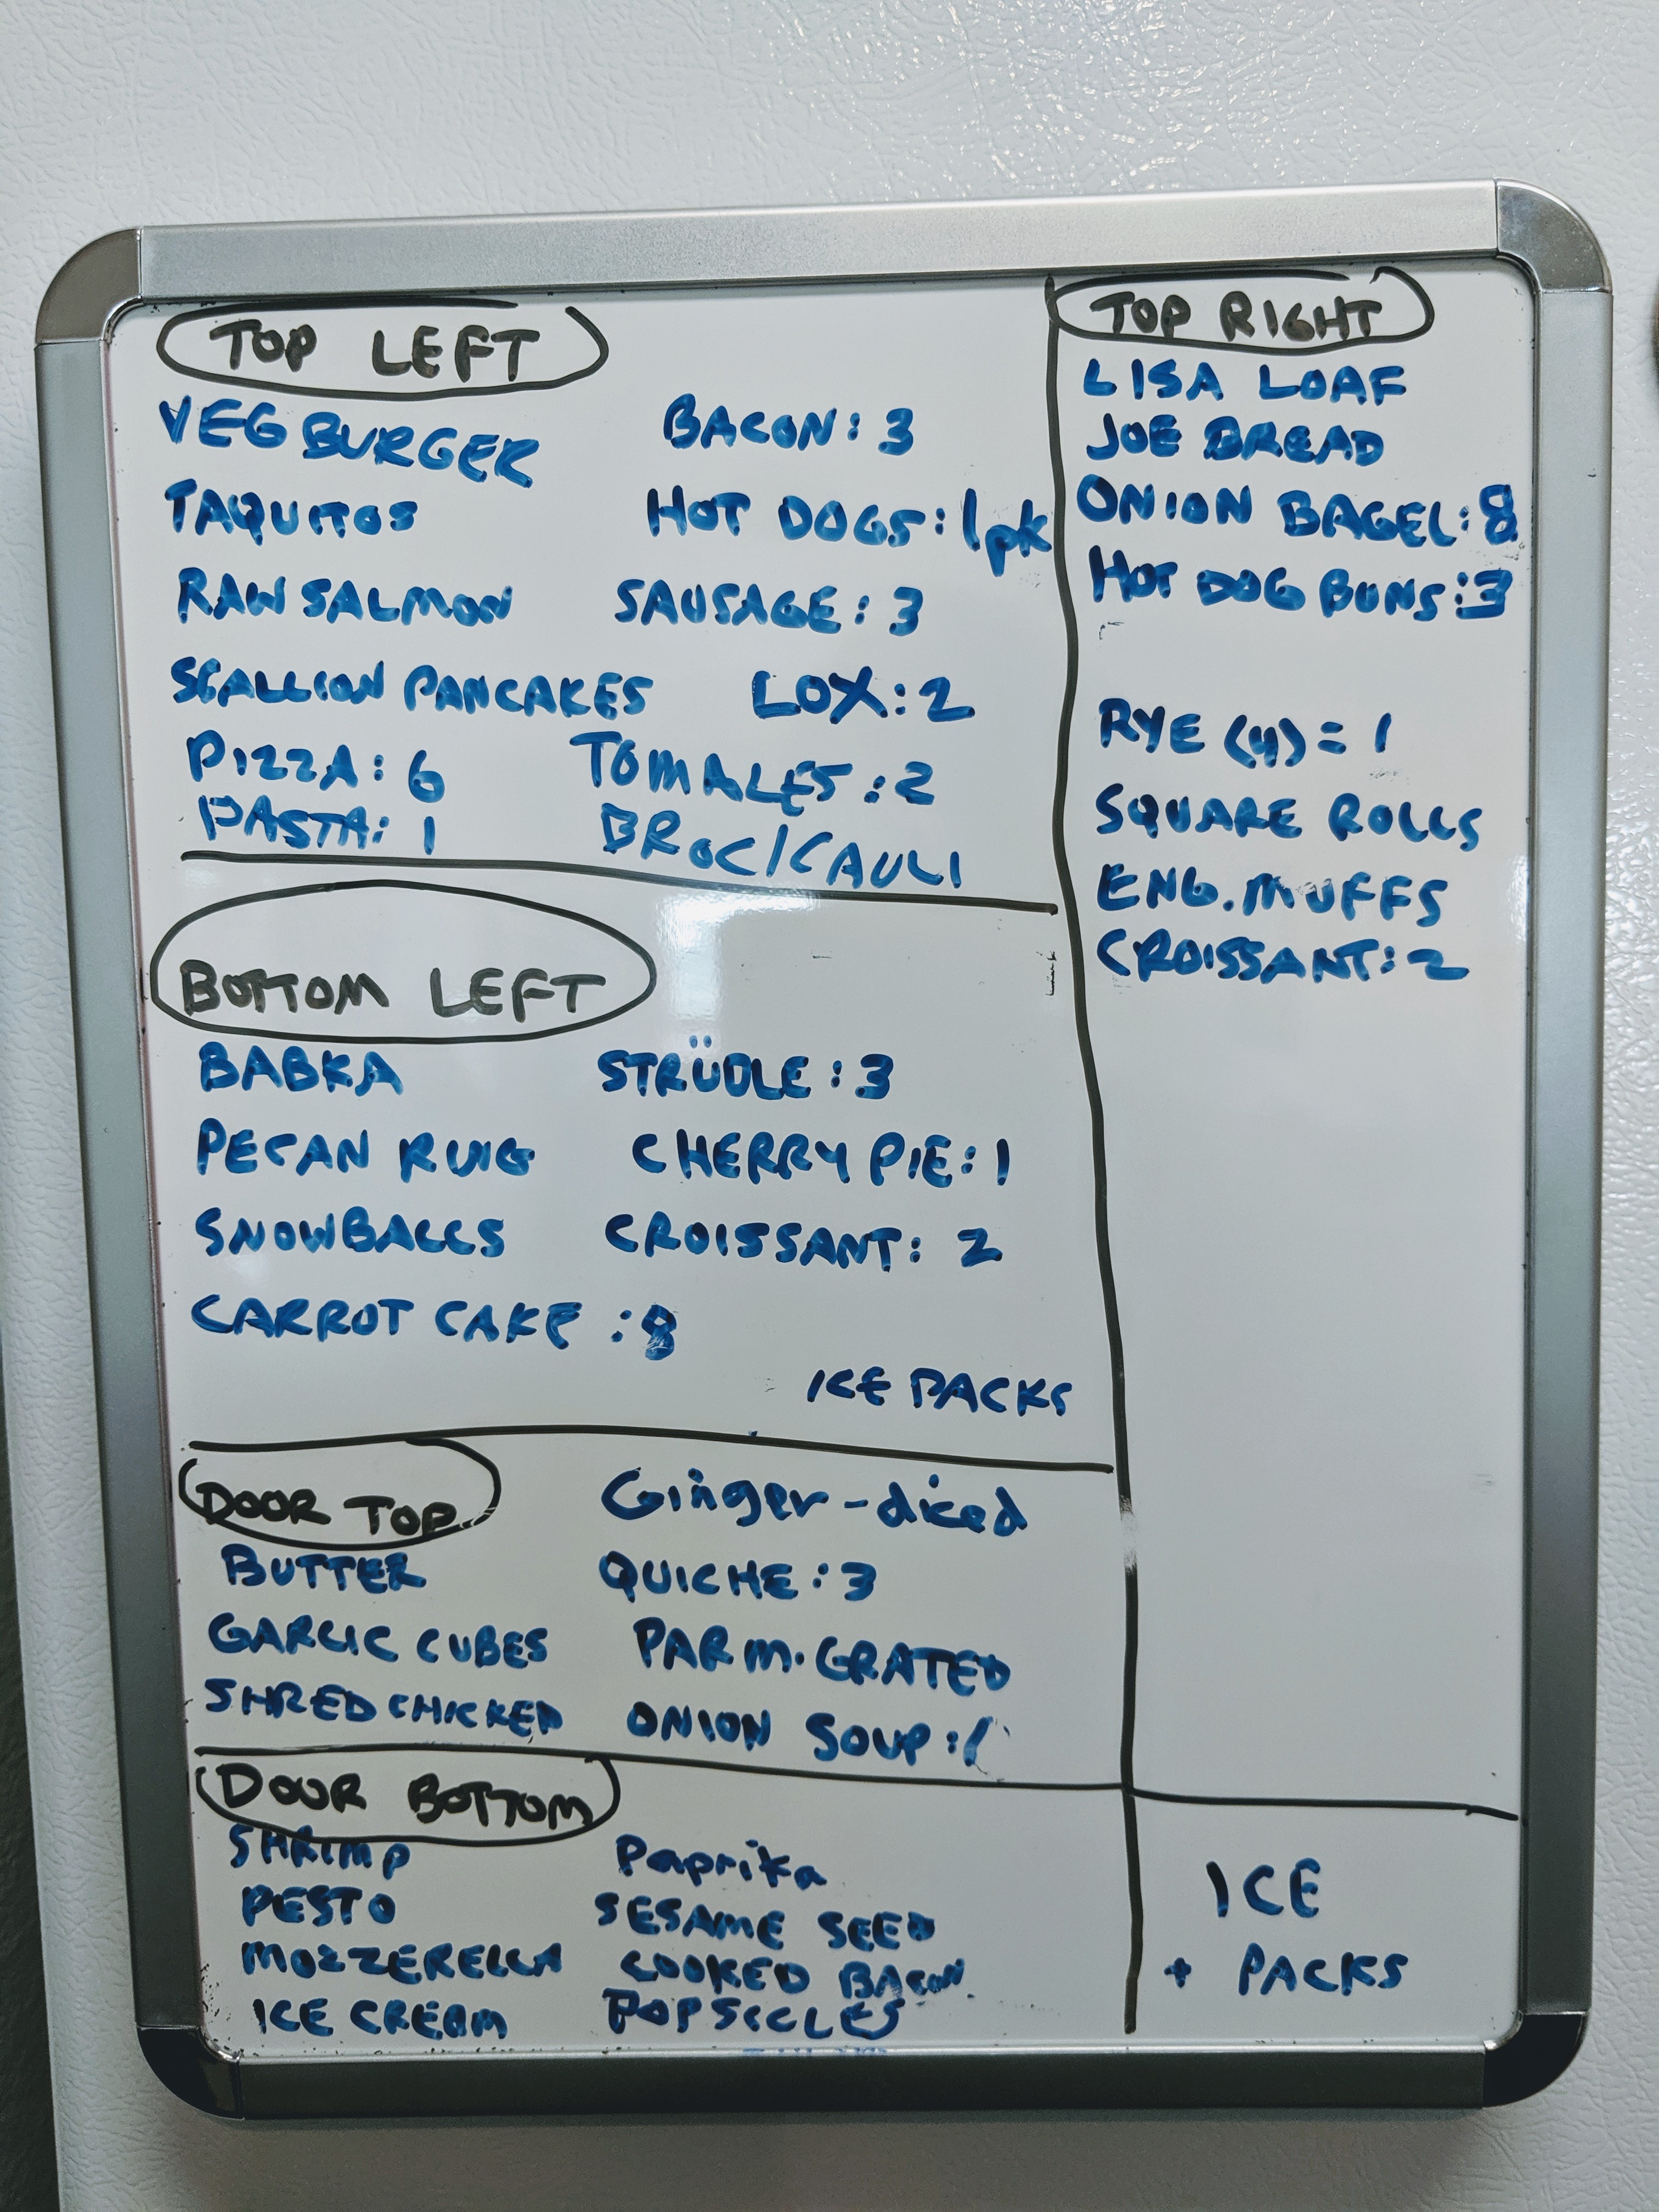 TOP LEFT
VEG BURGER BACON: 3
TAQUITOS HOT DOGS: 1pk
RAW SALMON SAUSAGE: 3
SCALLION PANCAKES LOX: 2
PIZZA: 6 TOMALES: 2
PASTA: 1 BROC/CAULI
TOP RIGHT
LISA LOAF
JOE BREAD
ONION BAGEL: 8
HOT DOG BUNS: 3
RYE (4) = 1
SQUARE ROLLS
ENG. MUFFS
CROISSANT: 2
BOTTOM LEFT
BABKA STRÜDLE: 3
PECAN RUIG CHERRY PIE: 1
SNOWBALLS CROISSANT: 2
CARROT CAKE: 8
ICE PACKS
DOOR TOP Ginger-diced
BUTTER QUICHE: 3
GARLIC CUBES PARM. GRATED
SHRED CHICKED ONION SOUP: 1
DOOR BOTTOM
SHRIMP Paprika
PESTO SESAME SEED
MOZZERELLA COOKED BACON
ICE CREAM POPSICLES
ICE
+ PACKS